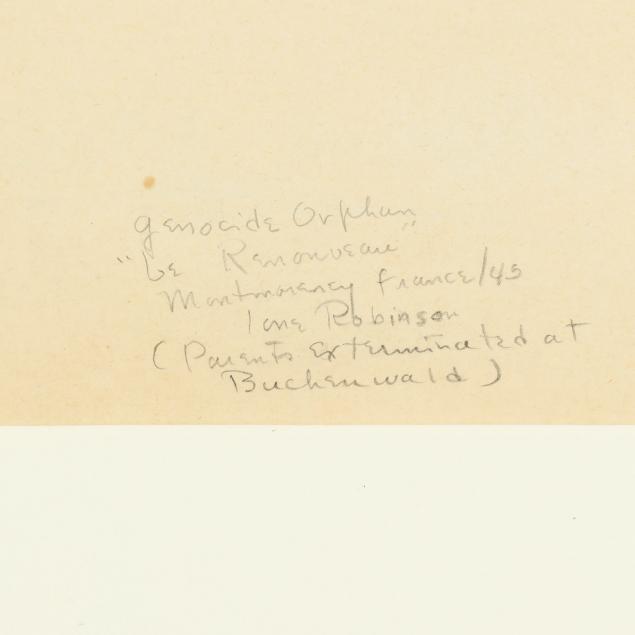 Genocide Orphan
"Le Renouveau"
Montmorency France/45
Ione Robinson
(Parents Exterminated at
Buchenwald)